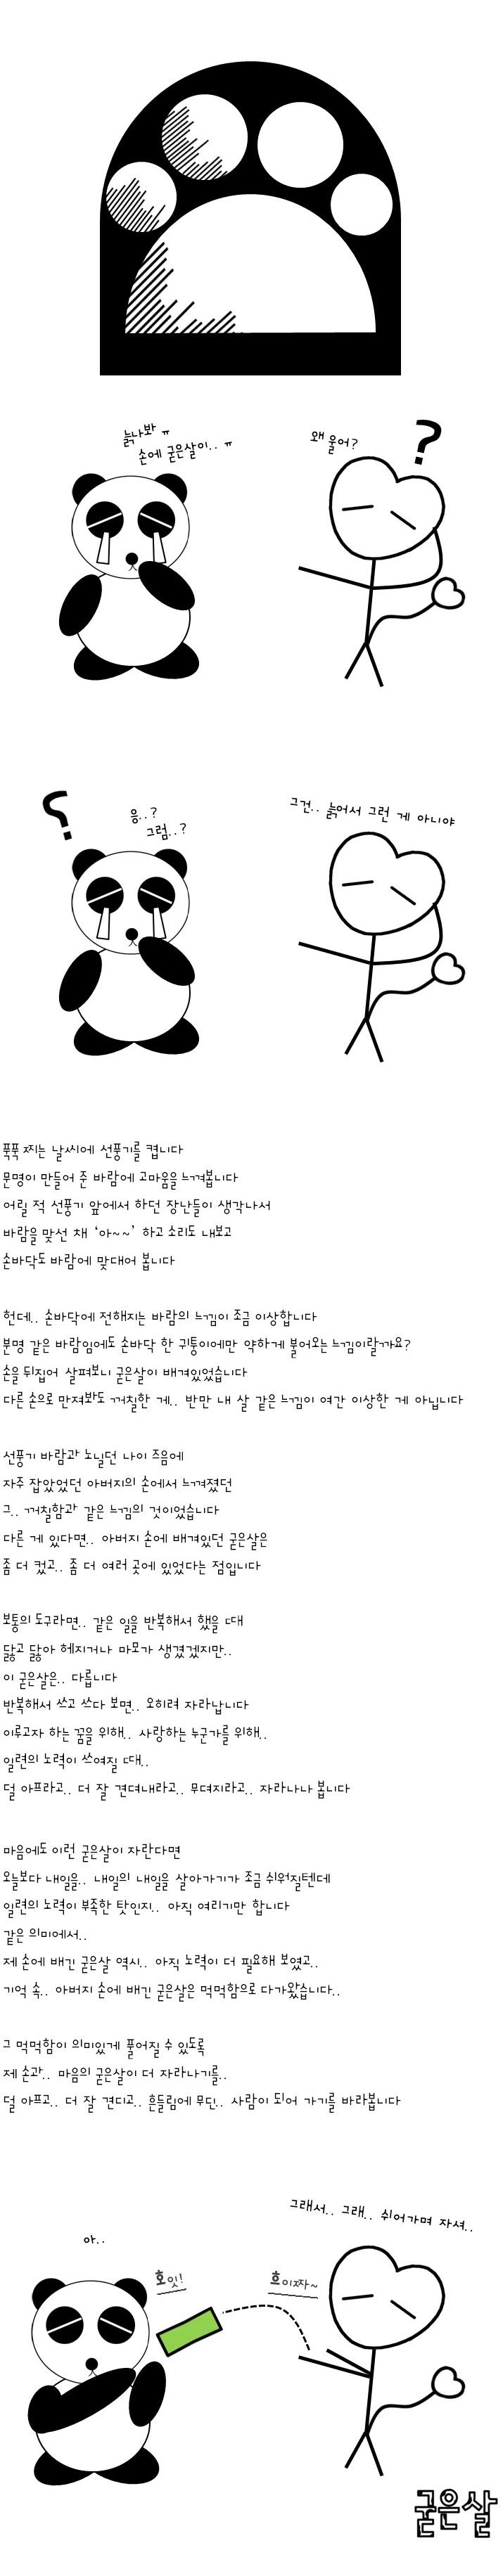 늙나봐 ㅠ
손에 굳은살이.. ㅠ
왜 울어?
?
?
응..?
그럼..?
그건.. 늙어서 그런 게 아니야
푹푹 찌는 날씨에 선풍기를 켭니다
문명이 만들어 준 바람에 고마움을 느껴봅니다
어릴 적 선풍기 앞에서 하던 장난들이 생각나서
바람을 맞선 채 '아~~' 하고 소리도 내보고
손바닥도 바람에 맞대어 봅니다
헌데.. 손바닥에 전해지는 바람의 느낌이 조금 이상합니다
분명 같은 바람임에도 손바닥 한 귀퉁이에만 약하게 불어오는 느낌이랄까요?
손을 뒤집어 살펴보니 굳은살이 배겨있었습니다
다른 손으로 만져봐도 꺼칠한 게.. 반만 내 살 같은 느낌이 여간 이상한 게 아닙니다
선풍기 바람과 노닐던 나이 즈음에
자주 잡았었던 아버지의 손에서 느껴졌던
그.. 꺼칠함과 같은 느낌의 것이었습니다
다른 게 있다면.. 아버지 손에 배겨있던 굳은살은
좀 더 컸고.. 좀 더 여러 곳에 있었다는 점입니다
보통의 도구라면.. 같은 일을 반복해서 했을 때
닳고 닳아 헤지거나 마모가 생겼겠지만..
이 굳은살은.. 다릅니다
반복해서 쓰고 쓰다 보면.. 오히려 자라납니다
이루고자 하는 꿈을 위해.. 사랑하는 누군가를 위해..
일련의 노력이 쓰여질 때..
덜 아프라고.. 더 잘 견뎌내라고.. 무뎌지라고.. 자라나나 봅니다
마음에도 이런 굳은살이 자란다면
오늘보다 내일을.. 내일의 내일을 살아가기가 조금 쉬워질텐데
일련의 노력이 부족한 탓인지.. 아직 여리기만 합니다
같은 의미에서..
제 손에 배긴 굳은살 역시.. 아직 노력이 더 필요해 보였고..
기억 속.. 아버지 손에 배긴 굳은살은 먹먹함으로 다가왔습니다..
그 먹먹함이 의미있게 풀어질 수 있도록
제 손과.. 마음의 굳은살이 더 자라나기를..
덜 아프고.. 더 잘 견디고.. 흔들림에 무딘.. 사람이 되어 가기를 바라봅니다
그래서.. 그래.. 쉬어가며 자셔..
아..
호잇!
흐이짜~
굳은살